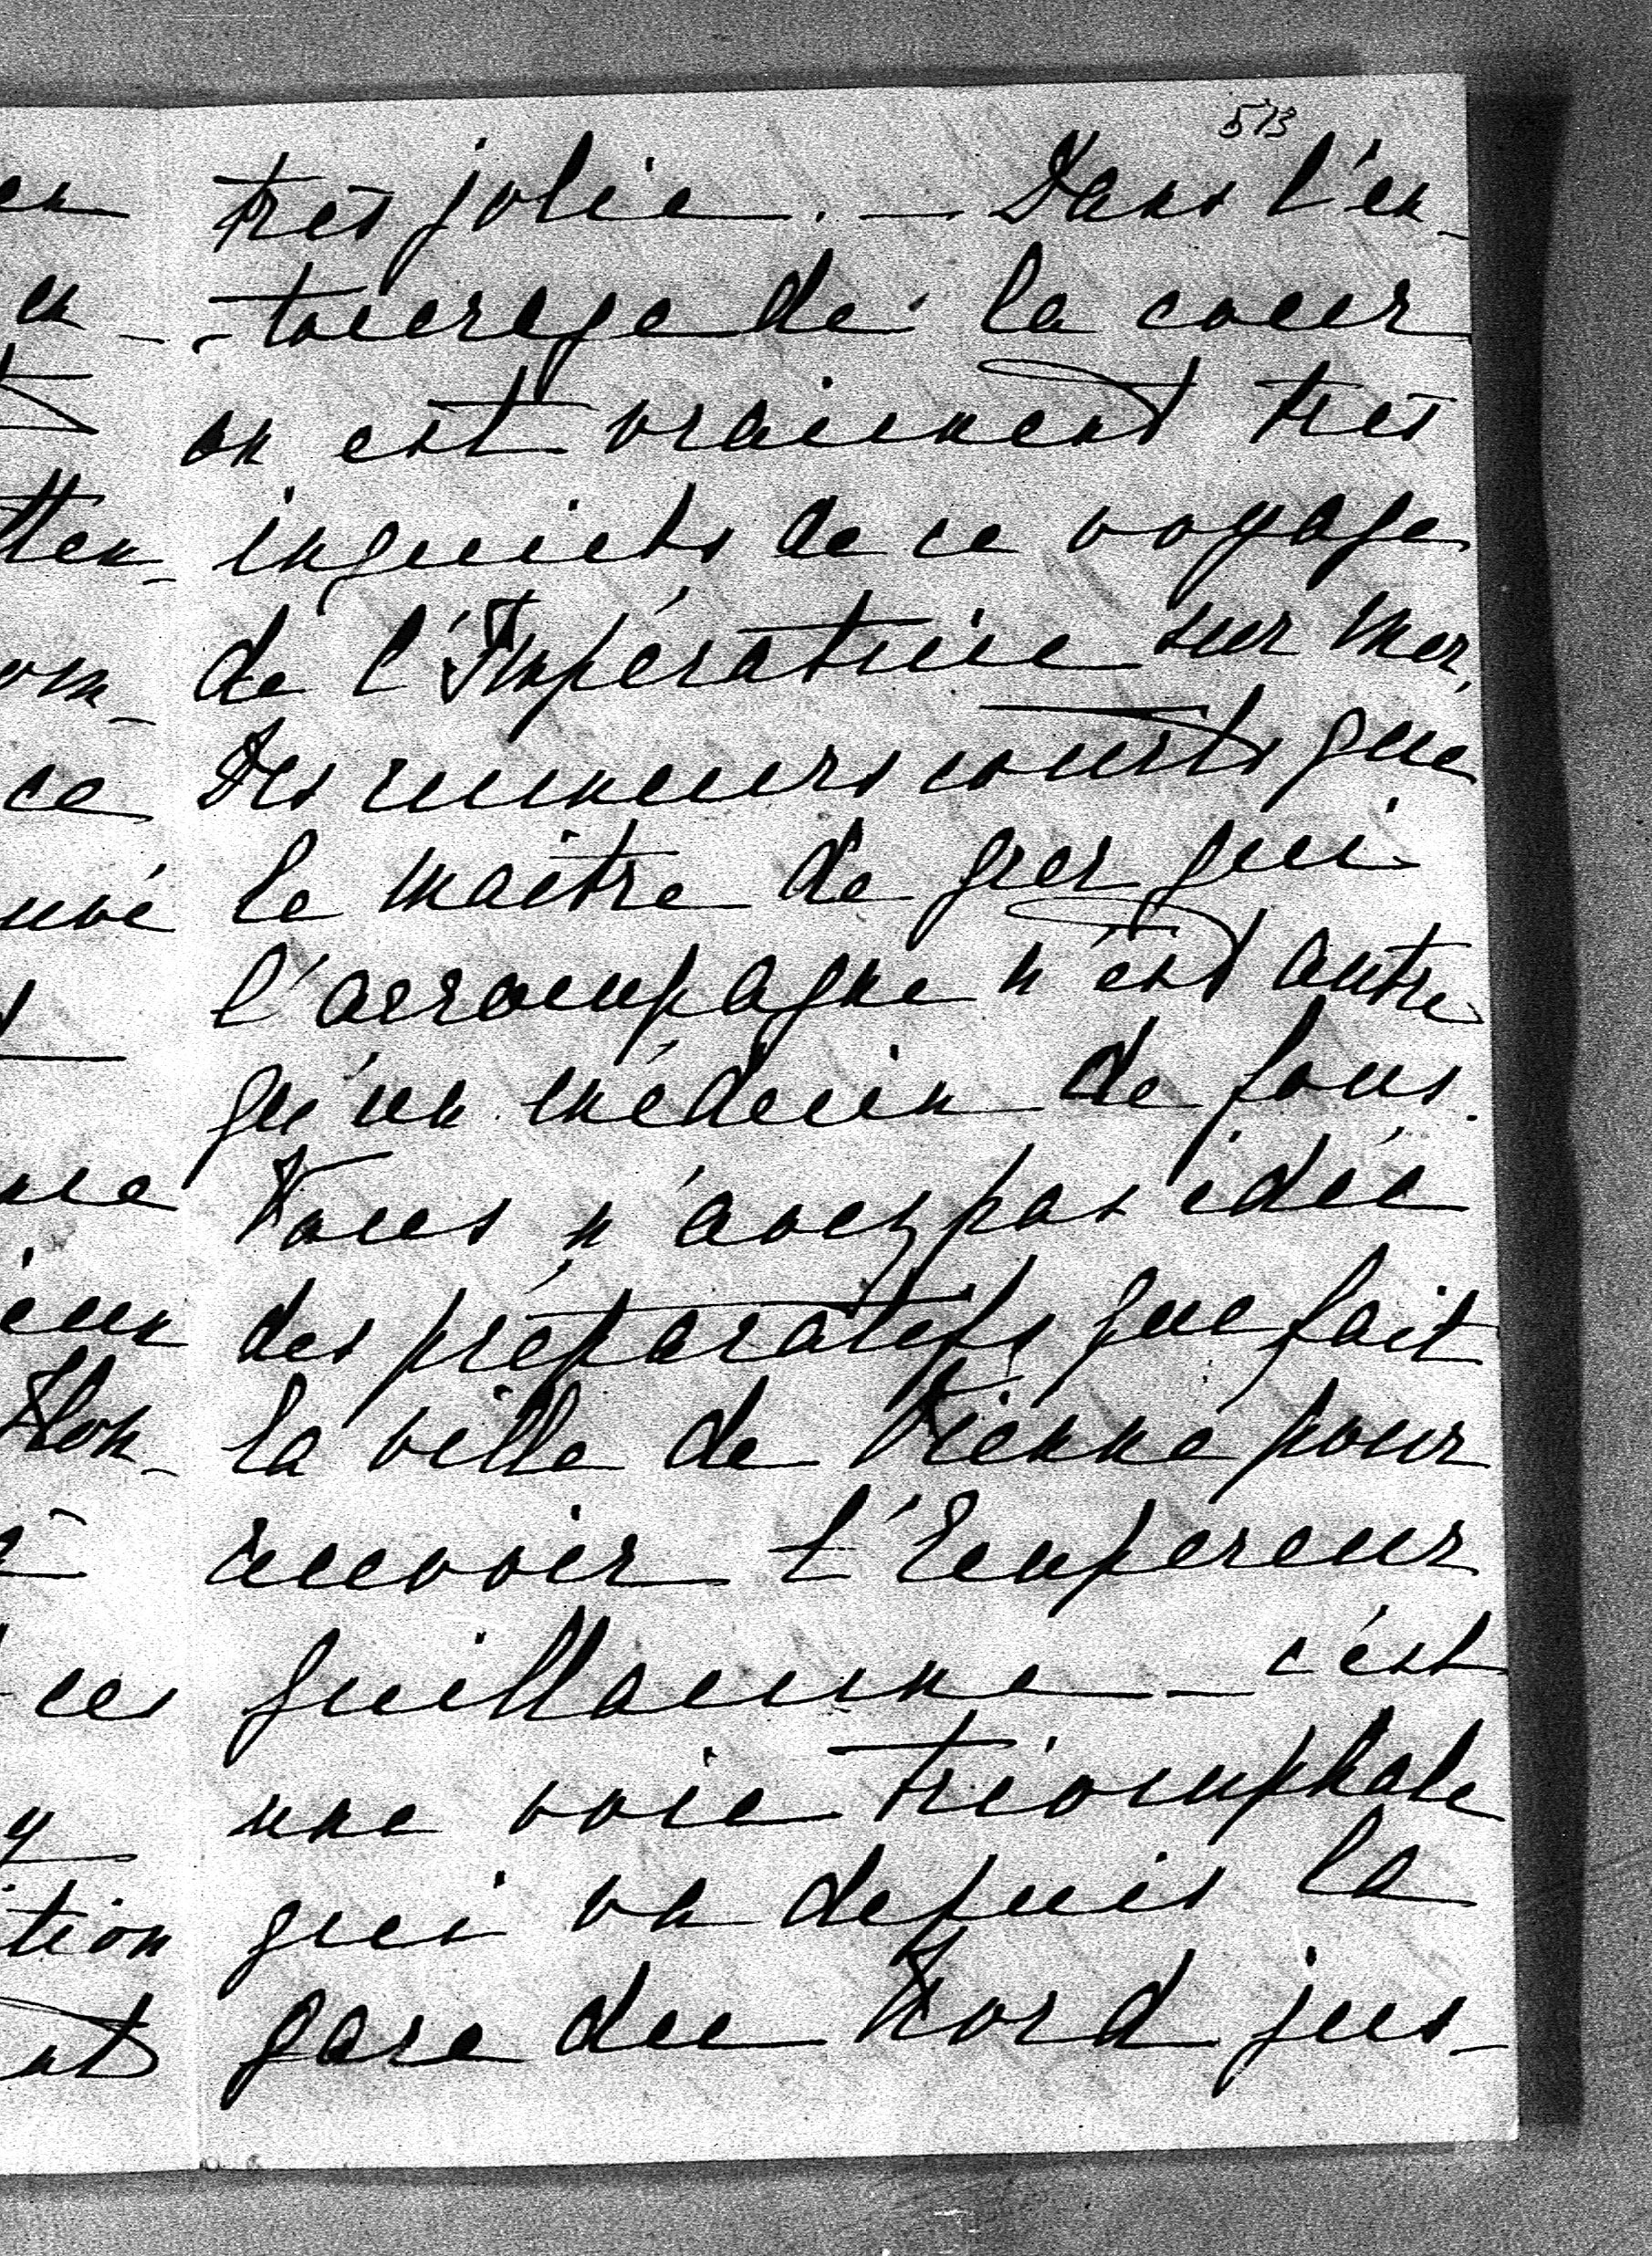 573
très jolie. — Dans l'en-
-tourage de la cour
on est vraiment très
inquiets de ce voyage
de l'Impératrice sur mer.
Des rumeurs courts que
le maître de grec qui
l'accompagne n'est autre
qu'un médecin de fous.
Vous n'avez pas idée
des préparatifs que fait
la ville de Vienne pour
recevoir l'Empereur
Guillaume — c'est
une voie triomphale
qui va depuis la
gare du Nord jus-